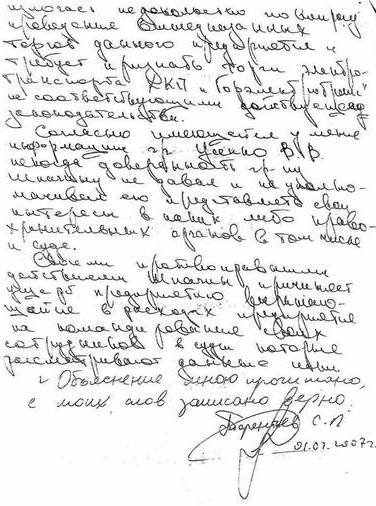 недовольство по поводу
проведение вышеуказанных
торгов данного предприятия и
требует признать торги электро-
транспорта ЖКП и Горэлектротранс
не соответствующими действующему
законодательству.
Согласно имеющейся у меня
информации гр. В. В.
никогда доверенность гр-ну
Шпагину не давал и не уполно-
мачивал его представлять свои
интересы в каких либо право-
хранительных органов в том числе
и суде.
Своими противоправными
действиями Шпагин причиняет
ущерб предприятию
в расходах предприятие
на командирование своих
сотрудников в суды которые
рассматривают данные иски
Объяснение мною прочитано,
с моих слов записано верно.
С. Л.
01.07.2007г.